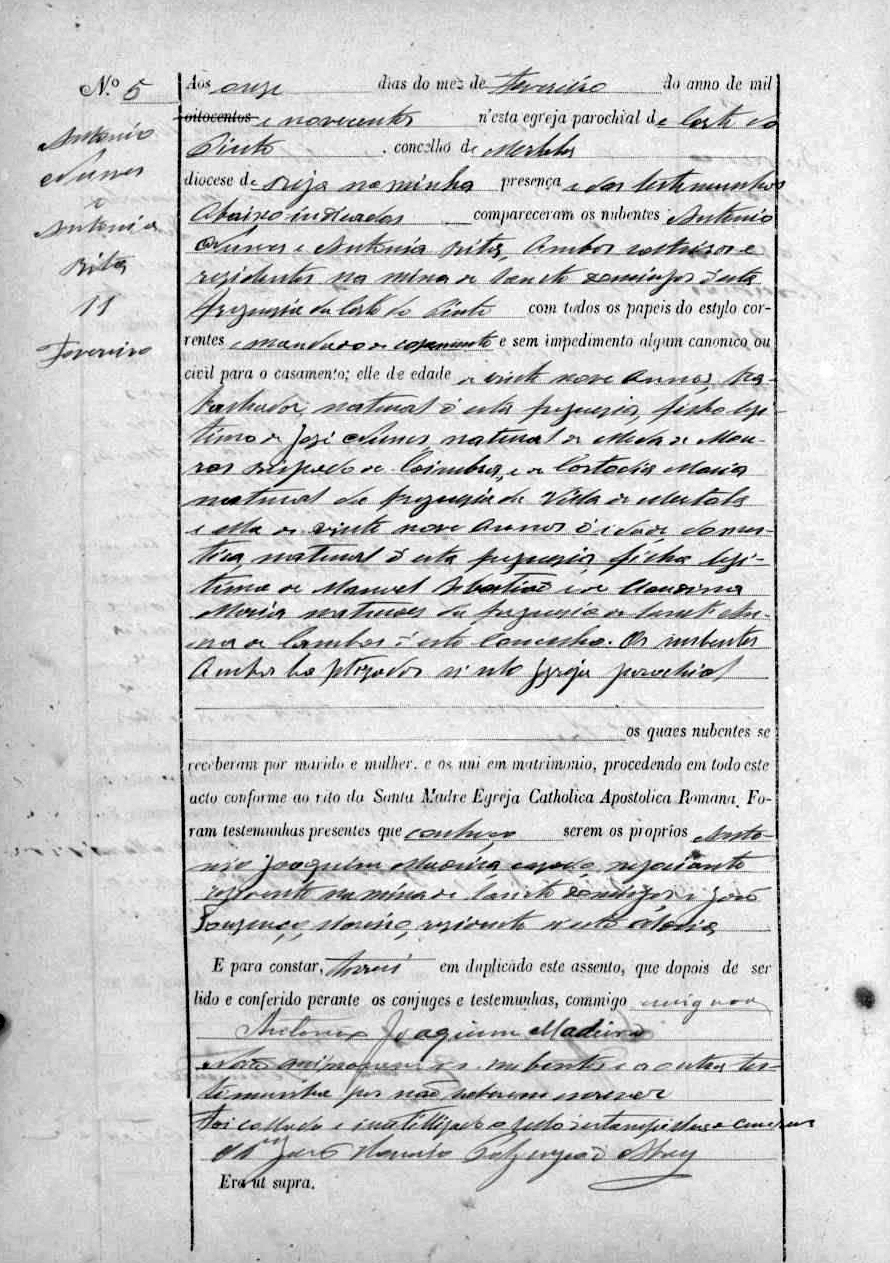 N.º 5
Antonio
Nunes
e
Antonia
Rita
11
Fevereiro
Aos onze dias do mez de Fevereiro do anno de mil
oitocentos e novecentos n'esta egreja parochial de Corte do
Pinto, concelho de Mertola
diocese de Beja na minha presença e das testemunhas
abaixo indicadas compareceram os nubentes Antonio
Nunes e Antonia Rita, ambos solteiros e
residentes na mina de Sancto Domingos d'esta
freguesia da Corte do Pinto com todos os papeis do estylo cor-
rentes e mandado de casamento e sem impedimento algum canonico ou
civil para o casamento; elle de edade de vinte nove annos, tra-
balhador, natural d'esta freguesia, filho legi-
timo de José Nunes natural de Meda de Mou-
ros Bispado de Coimbra, e de Costodia Maria
natural da freguesia da Villa de Mertola
e ella de vinte nove annos d'idade domes-
tica, natural d'esta freguesia, filha legi-
tima de Manoel Sebastião e de
Maria naturaes da freguesia de Sanct'An-
na de Cambas d'este Concelho. Os nubentes
ambos baptizados n'esta Igreja parochial
os quaes nubentes se
receberam por marido e mulher, e os uni em matrimonio, procedendo em todo este
acto conforme ao rito da Santa Madre Egreja Catholica Apostolica Romana. Fo-
ram testemunhas presentes que conheço serem os proprios Anto-
nio Joaquim Madeira, casado, negociante
residente na mina de Sancto Domingos e João
Lourenço, residente n'esta aldeia,
E para constar, lavrei em duplicado este assento, que depois de ser
lido e conferido perante os conjuges e testemunhas, commigo assignou
Antonio Joaquim Madeira
Não assignaram os nubentes e a outra tes-
temunha por não saberem escrever
Foi collado e inutilisado o sello
José
Era ut supra.